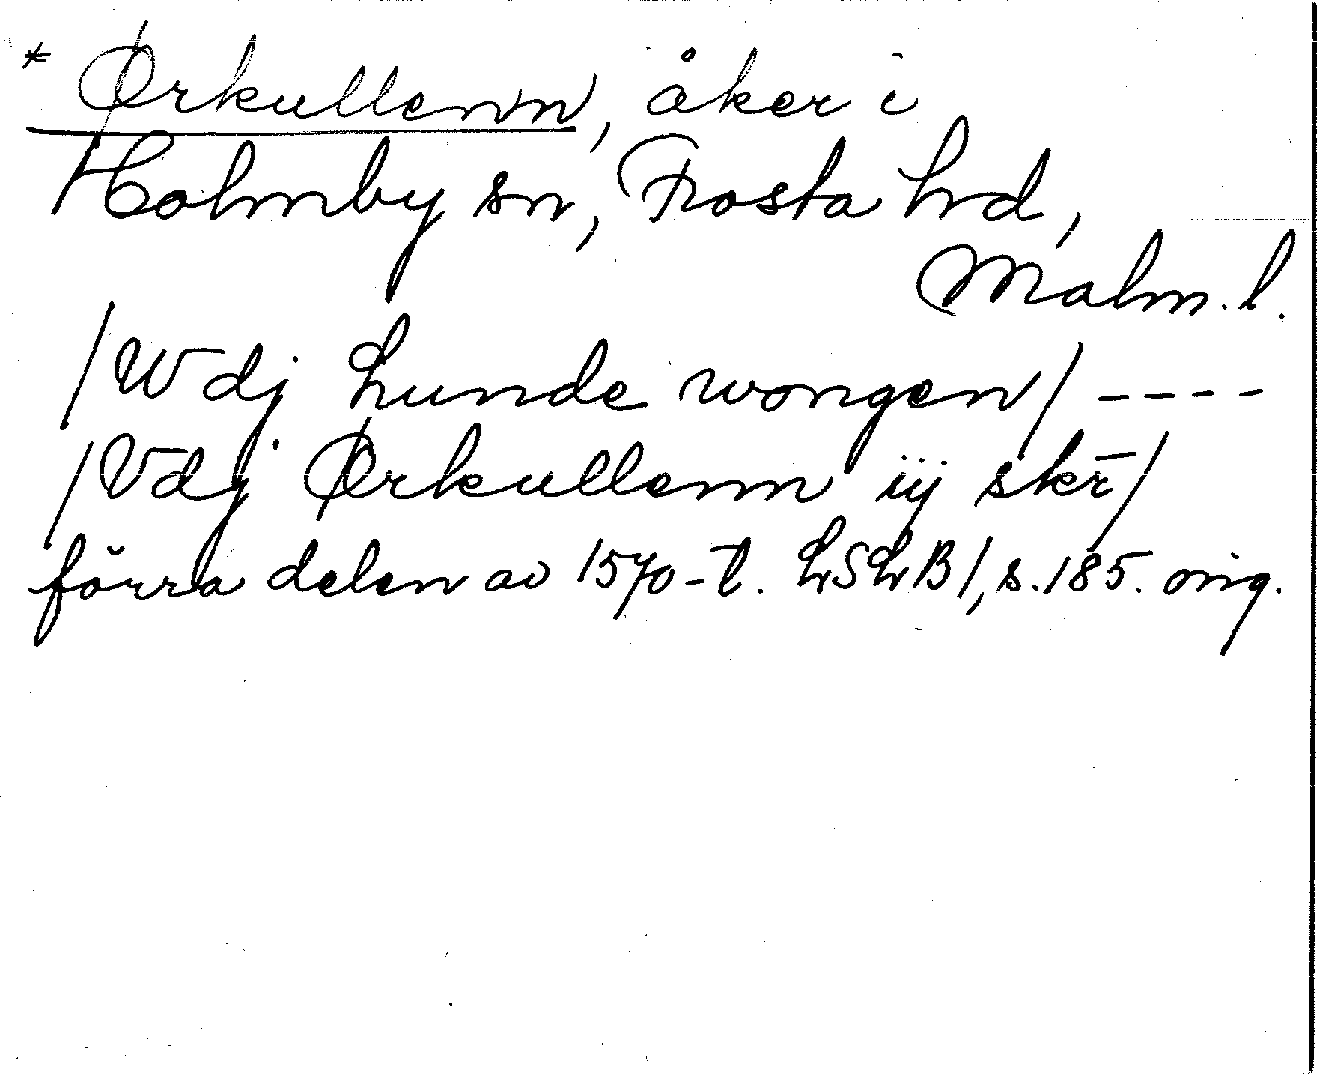 * Ørkullenn, åker i
Holmby sn, Frosta hd,
Malm. l.
/W dj hunde wongen/ ----
/Vdj Ørkullenn iij skr̄/
förra delen av 1570-t. LSLB 1, s. 185. orig.